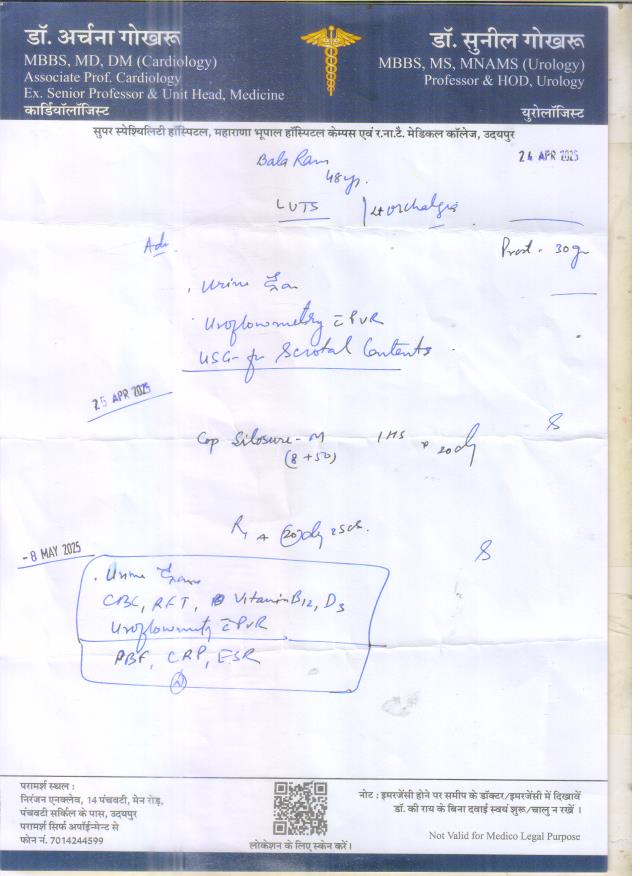 डॉ. अर्चना गोखरू
MBBS, MD, DM (Cardiology)
Associate Prof. Cardiology
Ex. Senior Professor & Unit Head, Medicine
कार्डियॉलॉजिस्ट
डॉ. सुनील गोखरू
MBBS, MS, MNAMS (Urology)
Professor & HOD, Urology
युरोलॉजिस्ट
सुपर स्पेश्यिलिटी हॉस्पिटल, महाराणा भूपाल हॉस्पिटल केम्पस एवं र.ना.टै. मेडिकल कॉलेज, उदयपुर
24 APR 2025
Bala Ram
48 yr.
LUTS
orchalgia
Adv.
Prost - 30 gm
Urine Exam
Uroflowmetry c̄ PVR
USG- for Scrotal Contents
25 APR 2025
Cap Silosure-M 1 HS x 20 day
(8 + 50)
- 8 MAY 2025
Urine Exam
CBC, RFT, Vitamin B12, D3
Uroflowmetry c̄ PVR
PBF, CRP, ESR
परामर्श स्थल :
निरंजन एनक्लेव, 14 पंचवटी, मेन रोड़,
पंचवटी सर्किल के पास, उदयपुर
परामर्श सिर्फ अपॉईन्मेन्ट से
फोन नं. 7014244599
लोकेशन के लिए स्केन करें।
नोट : इमरजेंसी होने पर समीप के डॉक्टर/इमरजेंसी में दिखावें
डॉ. की राय के बिना दवाई स्वयं शुरू/चालु न रखें ।
Not Valid for Medico Legal Purpose